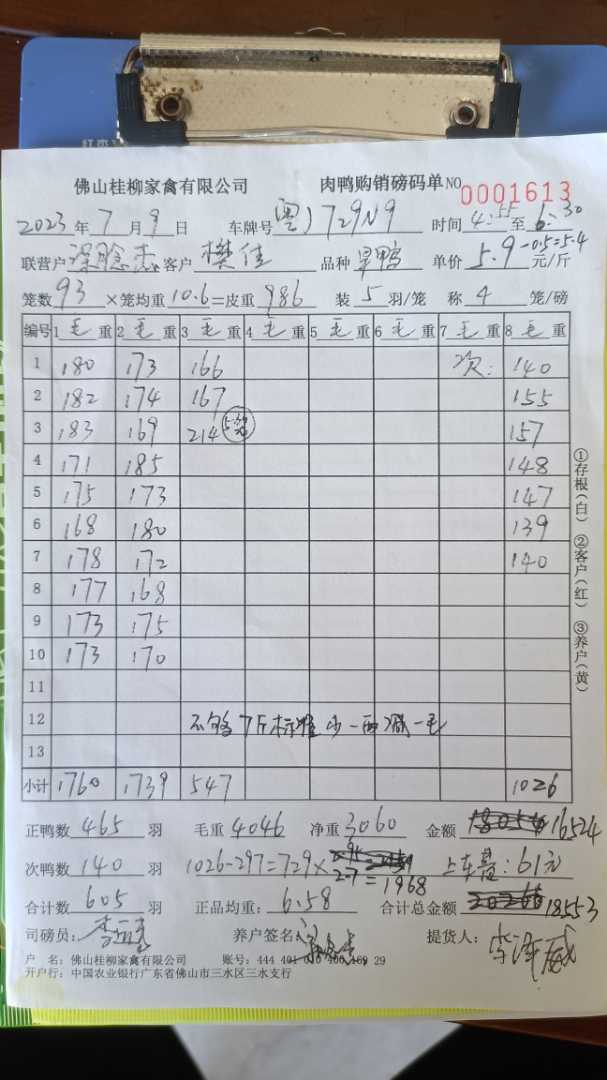 佛山桂柳家禽有限公司 肉鸭购销磅码单 NO 0001613
2023年7月9日 车牌号 粤J729N9 时间 4:55 至 6:30
联营户 客户 樊佳 品种 旱鸭 单价 5.9-0.5=5.4 元/斤
笼数 93 ×笼均重 10.6=皮重 986 装 5 羽/笼 称 4 笼/磅
编号 1 毛 重 2 毛 重 3 毛 重 4 毛 重 5 毛 重 6 毛 重 7 毛 重 8 毛 重
1 180 173 166 次: 140
2 182 174 167 155
3 183 169 214 5笼 157
4 171 185 148
5 175 173 147
6 168 180 139
7 178 172 140
8 177 168
9 173 175
10 173 170
11
12 不够7斤标准少一两减一毛
13
小计 1760 1739 547 1026
正鸭数 465 羽 毛重 4046 净重 3060 金额 16524
次鸭数 140 羽 1026-297=729× 2.7=1968 上车费:61元
合计数 605 羽 正品均重: 6.58 合计总金额 18553
司磅员: 养户签名: 提货人: 李泽威
户 名: 佛山桂柳家禽有限公司 账号: 444 401 29
开户行: 中国农业银行广东省佛山市三水区三水支行
①存根(白) ②客户(红) ③养户(黄)